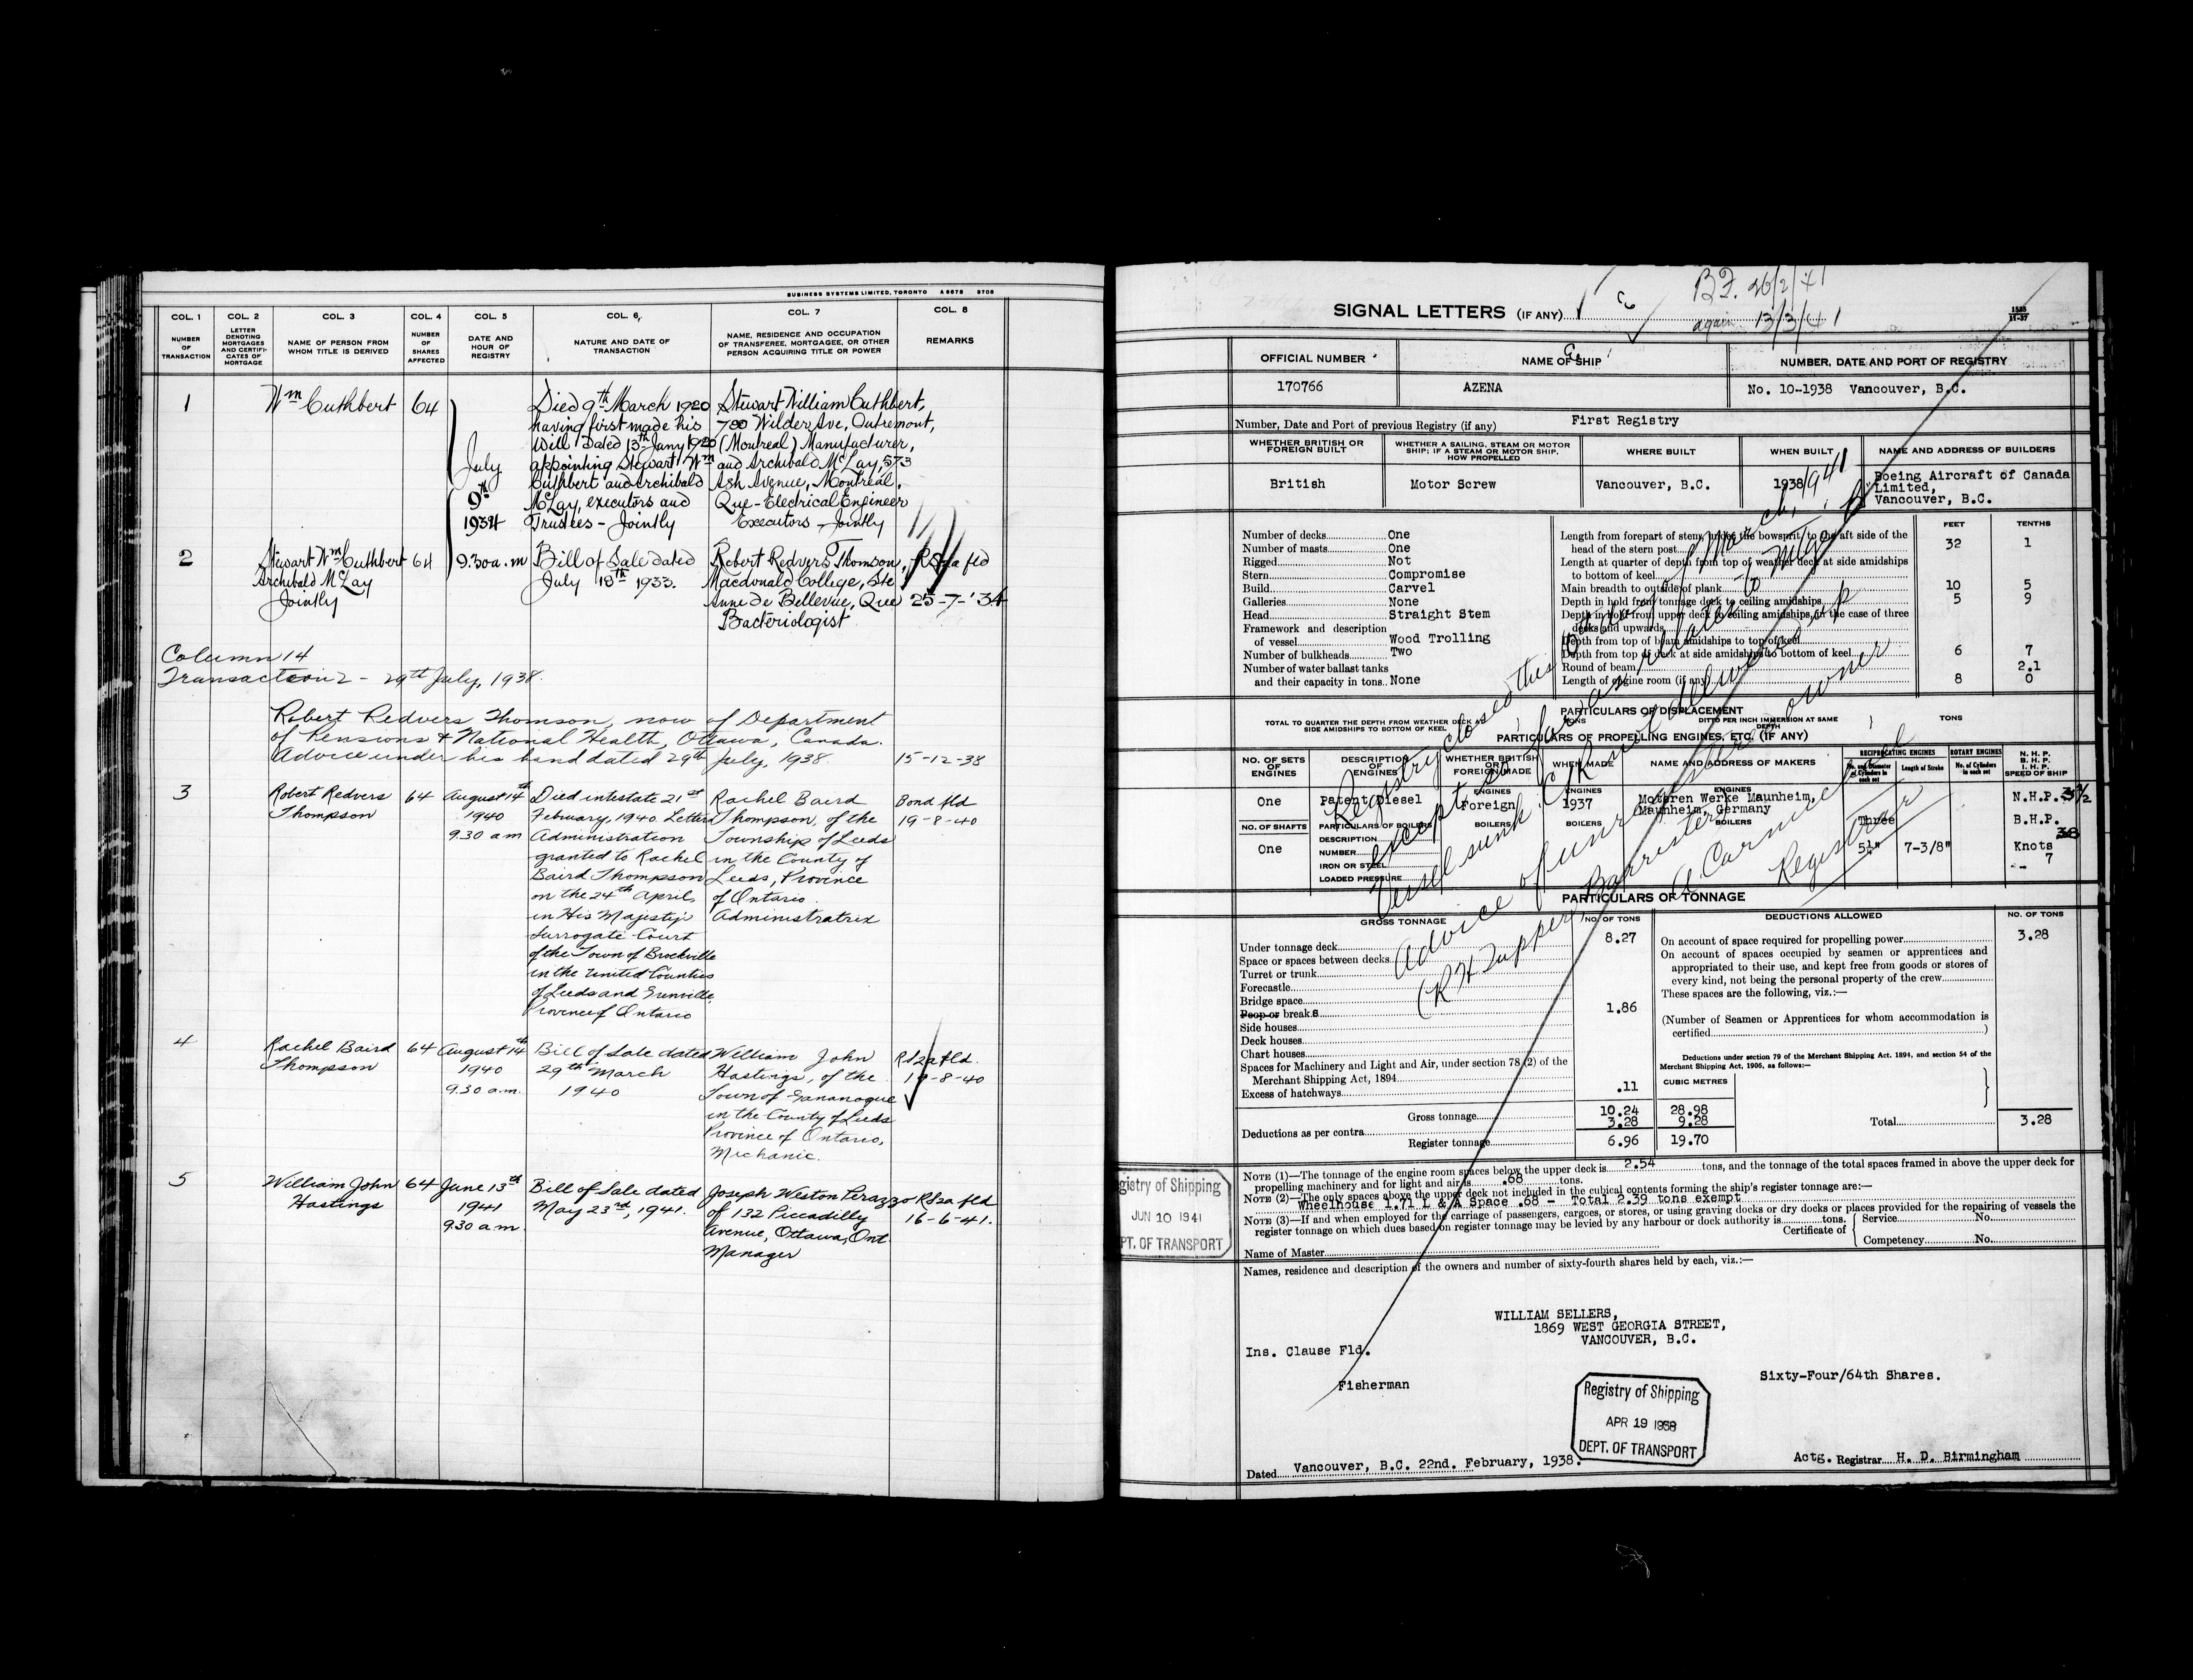 BUSINESS SYSTEMS LIMITED, TORONTO A 6878 8708
COL. 1 COL. 2 COL. 3 COL. 4 COL. 5 COL. 6 COL. 7 COL. 8
NUMBER OF TRANSACTION
LETTER DENOTING MORTGAGES AND CERTIFICATES OF MORTGAGE
NAME OF PERSON FROM WHOM TITLE IS DERIVED
NUMBER OF SHARES AFFECTED
DATE AND HOUR OF REGISTRY
NATURE AND DATE OF TRANSACTION
NAME, RESIDENCE AND OCCUPATION OF TRANSFEREE, MORTGAGEE, OR OTHER PERSON ACQUIRING TITLE OR POWER
REMARKS
1
Wm Cuthbert
64
July
9th
1934
Died 9th March 1920
having first made his
Will dated 13th Jany 1920
appointing Stewart Wm
Cuthbert and Archibald
McLay, executors and
Trustees - Jointly
Stewart William Cuthbert,
780 Wilder Ave, Outremont,
(Montreal) Manufacturer,
and Archibald McLay, 573
Ash Avenue, Montreal,
Que - Electrical Engineer
Executors - Jointly
2
Stewart Wm Cuthbert
Archibald McLay
Jointly
64
9.30 a.m
Bill of Sale dated
July 18th 1933.
Robert Redvers Thomson,
Macdonald College, Ste
Anne de Bellevue, Que
Bacteriologist
fld
25-7-'34
Column 14
Transaction 2 - 29th July, 1938.
Robert Redvers Thomson, now of Department
of Pensions & National Health, Ottawa, Canada.
Advice under his hand dated 29th July, 1938.
15-12-38
3
Robert Redvers
Thompson
64
August 14th
1940
9.30 am
Died intestate 21st
February, 1940. Letters
Administration
granted to Rachel
Baird Thompson
on the 24th April,
in His Majesty's
Surrogate Court
of the Town of Brockville
in the United Counties
of Leeds and Grenville
Province of Ontario
Rachel Baird
Thompson, of the
Township of Leeds
in the County of
Leeds, Province
of Ontario.
Administratrix
Bond fld
19-8-40
4
Rachel Baird
Thompson
64
August 14th
1940
9.30 a.m.
Bill of Sale dated
29th March
1940
William John
Hastings, of the
Town of Gananoque
in the County of Leeds
Province of Ontario,
Mechanic.
fld.
19-8-40
5
William John
Hastings
64
June 13th
1941
9.30 a.m.
Bill of Sale dated
May 23rd, 1941.
Joseph Weston Perazzo
of 132 Piccadilly
Avenue, Ottawa, Ont.
Manager
fld
16-6-41.
B.F. 26/2/41
again 13/3/41
SIGNAL LETTERS (IF ANY)
1535
11-37
OFFICIAL NUMBER
NAME OF SHIP
NUMBER, DATE AND PORT OF REGISTRY
170766
AZENA
No. 10-1938 Vancouver, B.C.
Number, Date and Port of previous Registry (if any) First Registry
WHETHER BRITISH OR FOREIGN BUILT
WHETHER A SAILING, STEAM OR MOTOR SHIP; IF A STEAM OR MOTOR SHIP, HOW PROPELLED
WHERE BUILT
WHEN BUILT
NAME AND ADDRESS OF BUILDERS
British
Motor Screw
Vancouver, B.C.
1938
Boeing Aircraft of Canada
Limited,
Vancouver, B.C.
FEET TENTHS
Number of decks One
Number of masts One
Rigged Not
Stern Compromise
Build Carvel
Galleries None
Head Straight Stem
Framework and description
of vessel Wood Trolling
Number of bulkheads Two
Number of water ballast tanks
and their capacity in tons None
Length from forepart of stem, under the bowsprit, to the aft side of the
head of the stern post 32 1
Length at quarter of depth from top of weather deck at side amidships
to bottom of keel
Main breadth to outside of plank 10 5
Depth in hold from tonnage deck to ceiling amidships 5 9
Depth in hold from upper deck to ceiling amidships, in the case of three
decks and upwards
Depth from top of beam amidships to top of keel
Depth from top of deck at side amidships to bottom of keel 6 7
Round of beam 2.1
Length of engine room (if any) 8 0
PARTICULARS OF DISPLACEMENT
TOTAL TO QUARTER THE DEPTH FROM WEATHER DECK AT SIDE AMIDSHIPS TO BOTTOM OF KEEL
TONS
DITTO PER INCH IMMERSION AT SAME DEPTH
TONS
PARTICULARS OF PROPELLING ENGINES, ETC. (IF ANY)
NO. OF SETS OF ENGINES
DESCRIPTION OF ENGINES
WHETHER BRITISH OR FOREIGN MADE
WHEN MADE
NAME AND ADDRESS OF MAKERS
RECIPROCATING ENGINES
No. and Diameter of Cylinders in each set
Length of Stroke
ROTARY ENGINES
No. of Cylinders in each set
N. H. P.
B. H. P.
I. H. P.
SPEED OF SHIP
One
Patent Diesel
ENGINES
Foreign
ENGINES
1937
ENGINES
Motoren Werke Maunheim,
Maunheim, Germany
N.H.P. 3½
NO. OF SHAFTS
PARTICULARS OF BOILERS
BOILERS
BOILERS
BOILERS
Three
B.H.P.
38
One
DESCRIPTION
NUMBER
IRON OR STEEL
LOADED PRESSURE
5¼" 7-3/8"
Knots
7
PARTICULARS OF TONNAGE
GROSS TONNAGE NO. OF TONS
DEDUCTIONS ALLOWED NO. OF TONS
Under tonnage deck 8.27
Space or spaces between decks
Turret or trunk
Forecastle
Bridge space
Poop or breaks 1.86
Side houses
Deck houses
Chart houses
Spaces for Machinery and Light and Air, under section 78 (2) of the
Merchant Shipping Act, 1894
Excess of hatchways .11
Gross tonnage 10.24 28.98
Deductions as per contra 3.28 9.28
Register tonnage 6.96 19.70
CUBIC METRES
On account of space required for propelling power 3.28
On account of spaces occupied by seamen or apprentices and
appropriated to their use, and kept free from goods or stores of
every kind, not being the personal property of the crew
These spaces are the following, viz.:—
(Number of Seamen or Apprentices for whom accommodation is
certified )
Deductions under section 79 of the Merchant Shipping Act, 1894, and section 54 of the
Merchant Shipping Act, 1906, as follows:—
Total 3.28
NOTE (1)—The tonnage of the engine room spaces below the upper deck is 2.54 tons, and the tonnage of the total spaces framed in above the upper deck for
propelling machinery and for light and air is .68 tons.
NOTE (2)—The only spaces above the upper deck not included in the cubical contents forming the ship's register tonnage are:—
Wheelhouse 1.71 L & A Space .68 - Total 2.39 tons exempt
NOTE (3)—If and when employed for the carriage of passengers, cargoes, or stores, or using graving docks or dry docks or places provided for the repairing of vessels the
register tonnage on which dues based on register tonnage may be levied by any harbour or dock authority is tons.
Certificate of
Service No.
Competency No.
Name of Master
Names, residence and description of the owners and number of sixty-fourth shares held by each, viz.:—
WILLIAM SELLERS,
1869 WEST GEORGIA STREET,
VANCOUVER, B.C.
Ins. Clause Fld.
Fisherman
Sixty-Four/64th Shares.
Registry of Shipping
APR 19 1938
DEPT. OF TRANSPORT
Dated Vancouver, B.C. 22nd. February, 1938.
Actg. Registrar H. D. Birmingham
gistry of Shipping
JUN 10 1941
PT. OF TRANSPORT
Registry closed this day of March, 1941
except so far as relates to Mtge. B
Vessel sunk
Advice of unregistered owner
(R H Tupper Barrister)
A Carmichael
Registrar